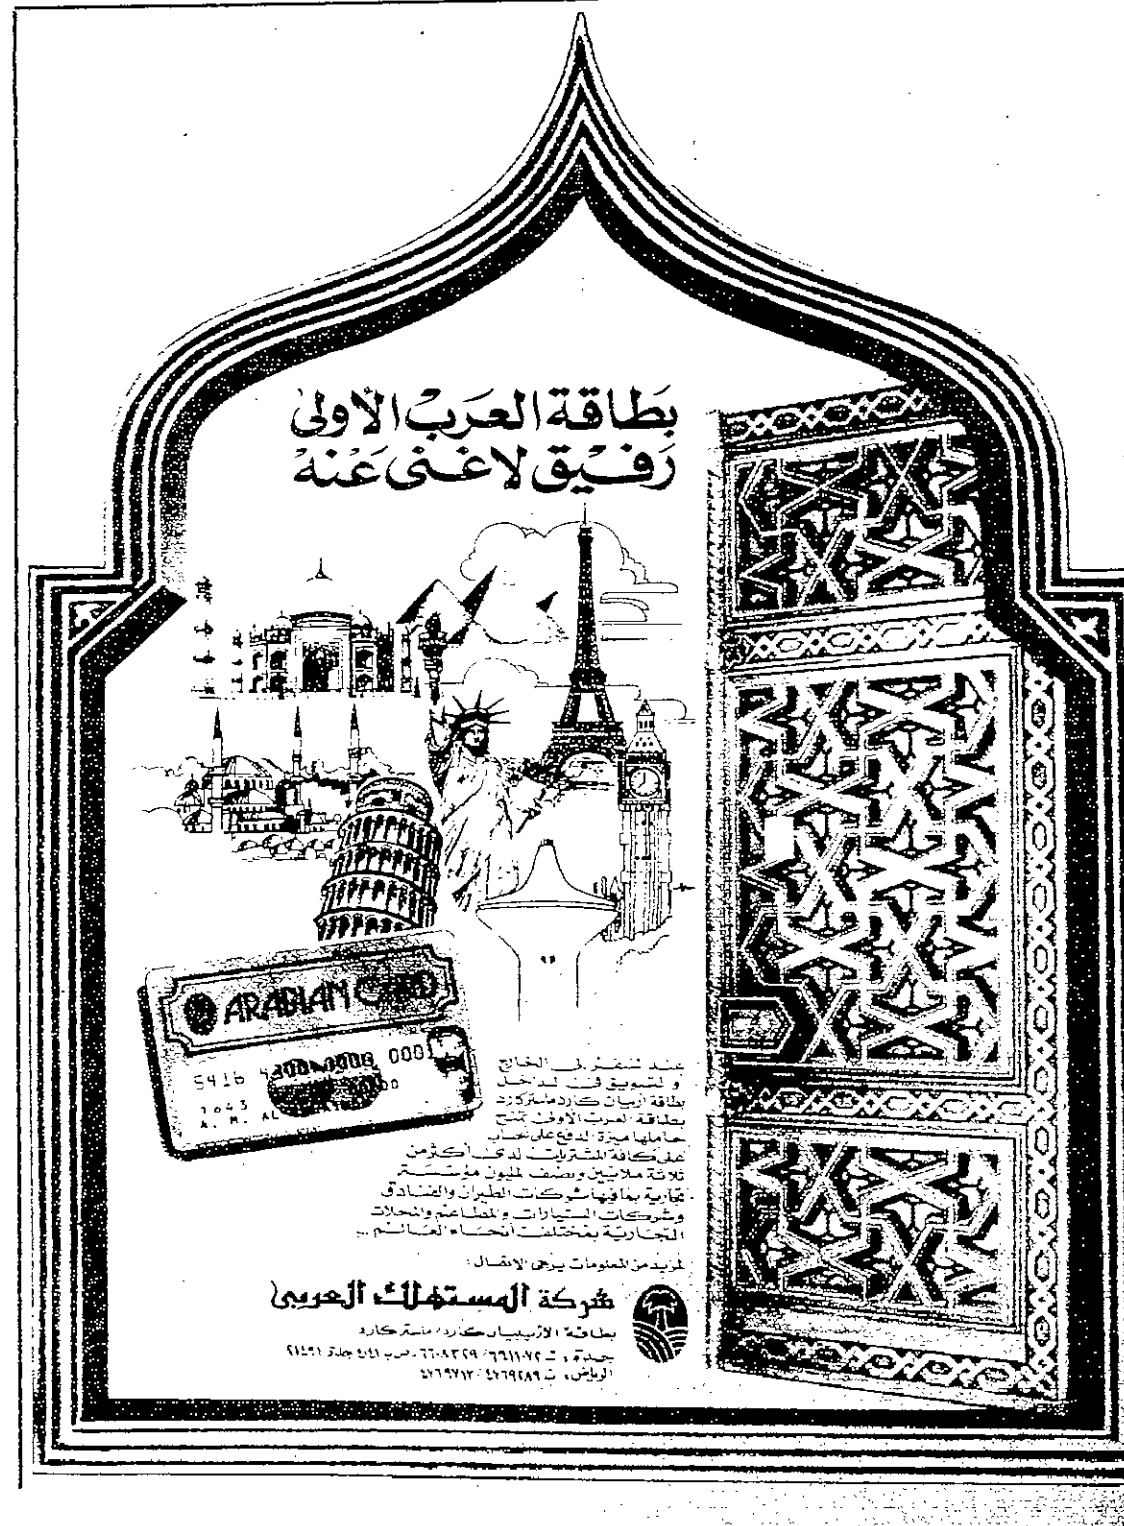 بَطاقة العَرَبْ الأولى
رَفيْق لاغنى عَنهْ
ARABIAN CARD
5416
0001
A. M. AL
عند السفر إلى الخارج
أو التسويق في الداخل
بطاقة أربيان كارد ماستركارد
بطاقة العرب الأولى تمنح
حاملها ميزة الدفع على حساب
على كافة المشتريات لدى أكثر من
ثلاثة ملايين ونصف المليون مؤسسة
تجارية بما فيها شركات الطيران والفنادق
وشركات السيارات والمطاعم والمحلات
التجارية بمختلف أنحاء العالم ..
لمزيد من المعلومات يرجى الاتصال :
شركة المستهلك العربي
بطاقة الأربيان كارد / ماستر كارد
جدة ، ت ٦٦١١٠٧٢ / ٦٦٠٨٣٢٩ - ص ب ٤١٤١ جدة ٢١٤٩١
الرياض ، ت ٤٧٦٩٢٨٩ / ٤٧٦٩٧١٢